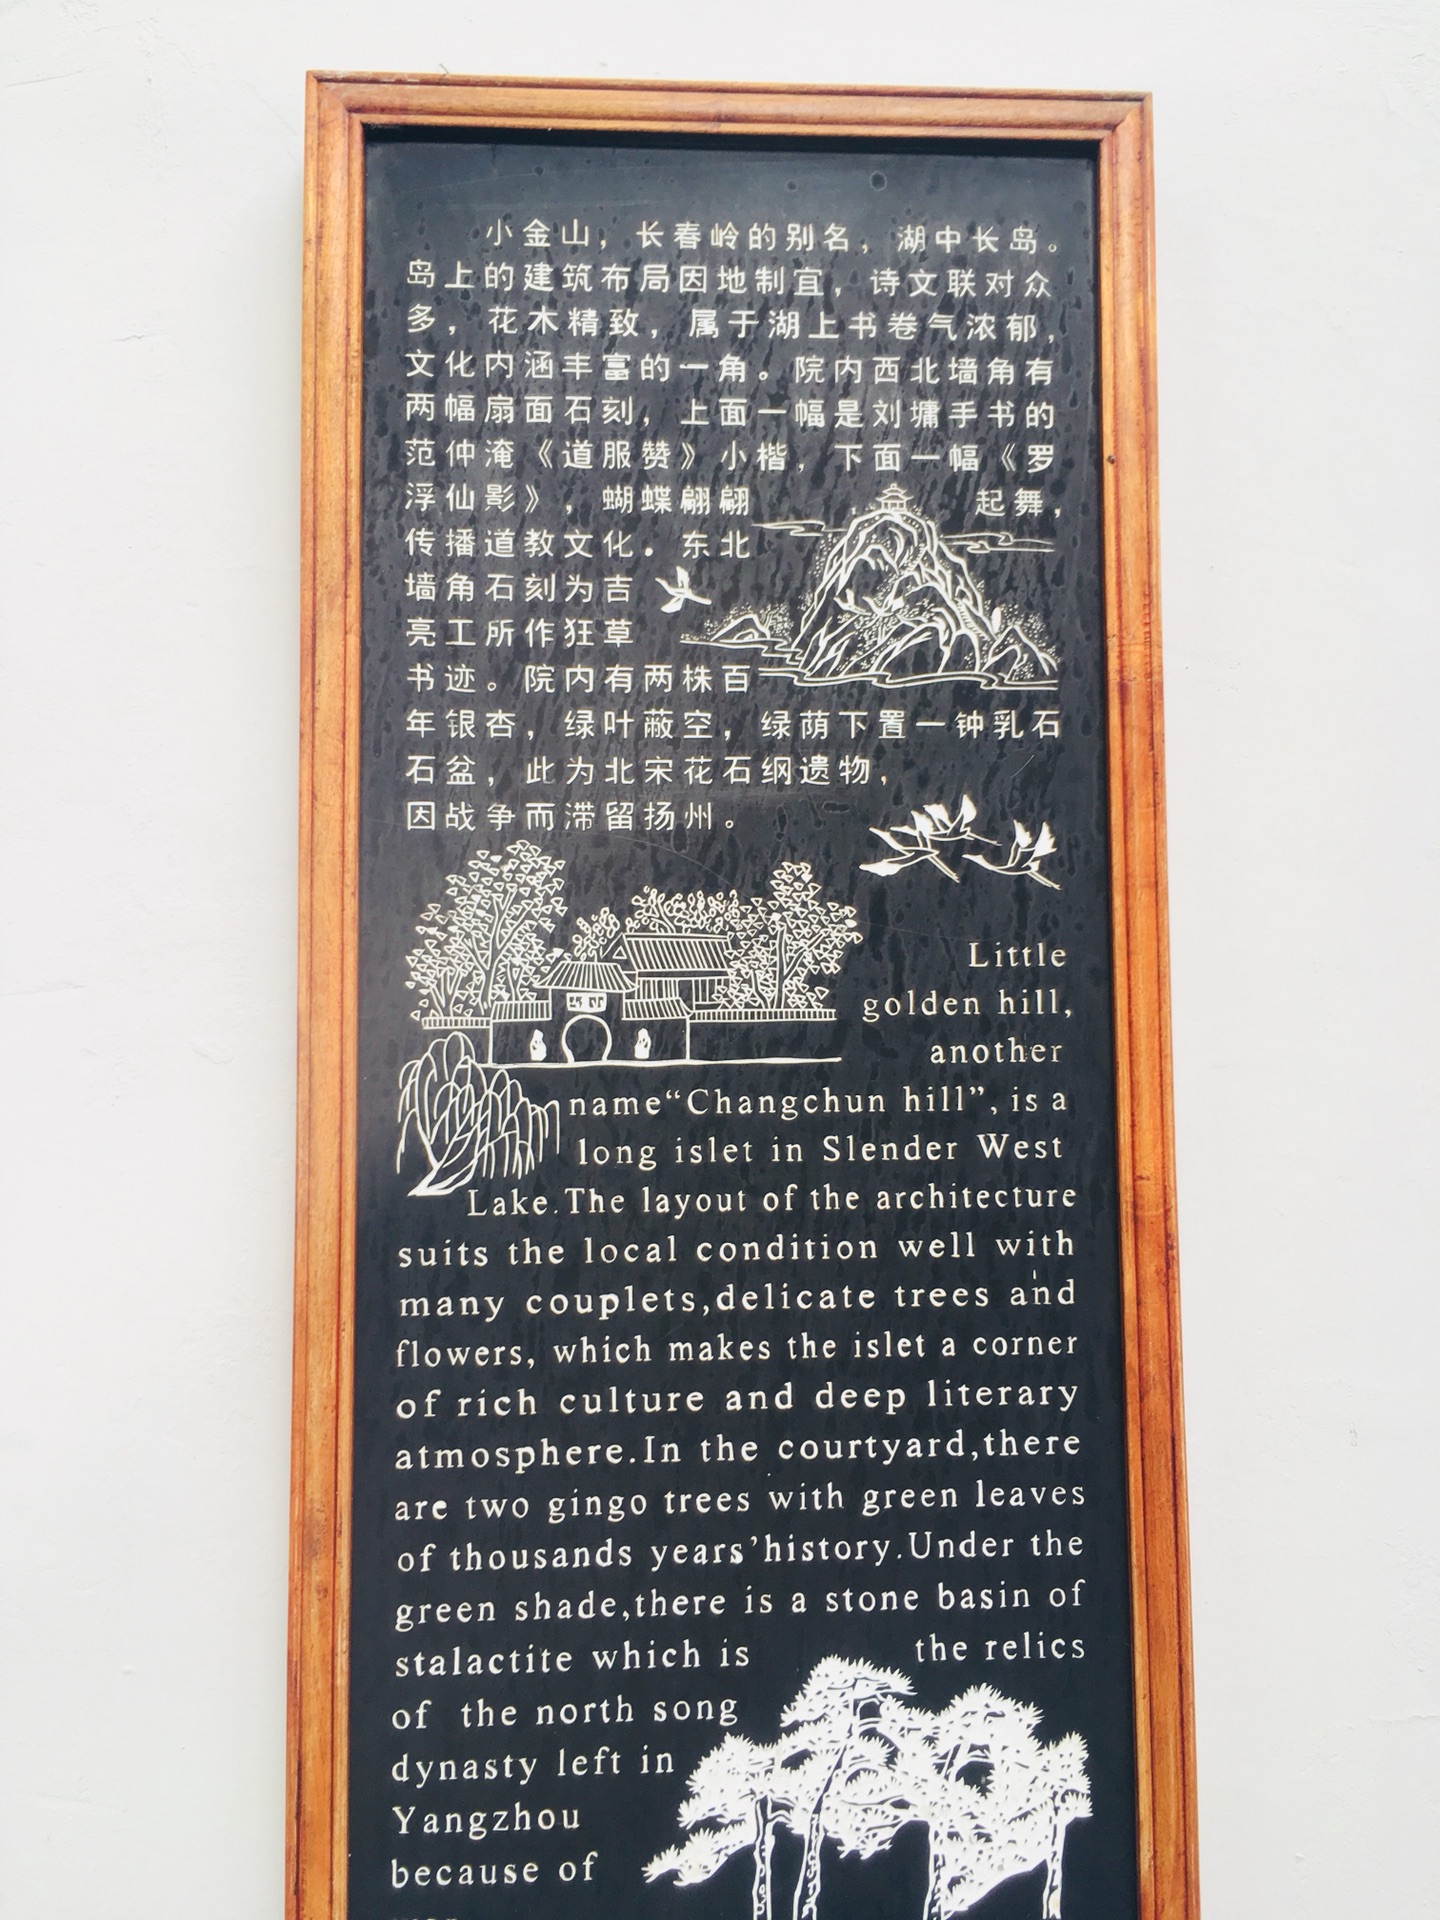 小金山，长春岭的别名，湖中长岛。
岛上的建筑布局因地制宜，诗文联对众
多，花木精致，属于湖上书卷气浓郁，
文化内涵丰富的一角。院内西北墙角有
两幅扇面石刻，上面一幅是刘墉手书的
范仲淹《道服赞》小楷，下面一幅《罗
浮仙影》，蝴蝶翩翩起舞，
传播道教文化．东北
墙角石刻为吉
亮工所作狂草
书迹。院内有两株百
年银杏，绿叶蔽空，绿荫下置一钟乳石
石盆，此为北宋花石纲遗物，
因战争而滞留扬州。
Little
golden hill,
another
name“Changchun hill”, is a
long islet in Slender West
Lake.The layout of the architecture
suits the local condition well with
many couplets,delicate trees and
flowers, which makes the islet a corner
of rich culture and deep literary
atmosphere.In the courtyard,there
are two gingo trees with green leaves
of thousands years’history.Under the
green shade,there is a stone basin of
stalactite which is the relics
of the north song
dynasty left in
Yangzhou
because of